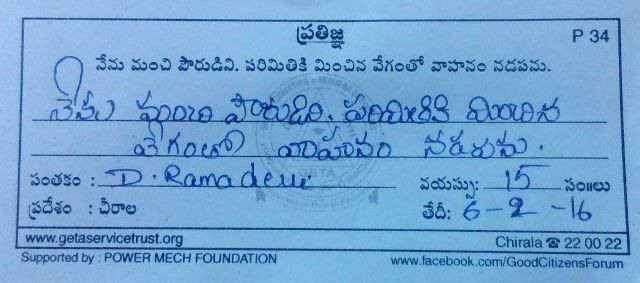 ప్రతిజ్ఞ P 34
నేను మంచి పౌరుడిని. పరిమితికి మించిన వేగంతో వాహనం నడపను.
నేను మంచి పౌరుడిని. పరిమితికి మించిన
వేగంతో వాహనం నడపను.
సంతకం : D. Ramadevi వయస్సు: 15 సం॥లు
ప్రదేశం : చీరాల తేదీ: 6-2-16
www.getaservicetrust.org Chirala ☎ 22 00 22
Supported by : POWER MECH FOUNDATION www.facebook.com/GoodCitizensForum
GETA